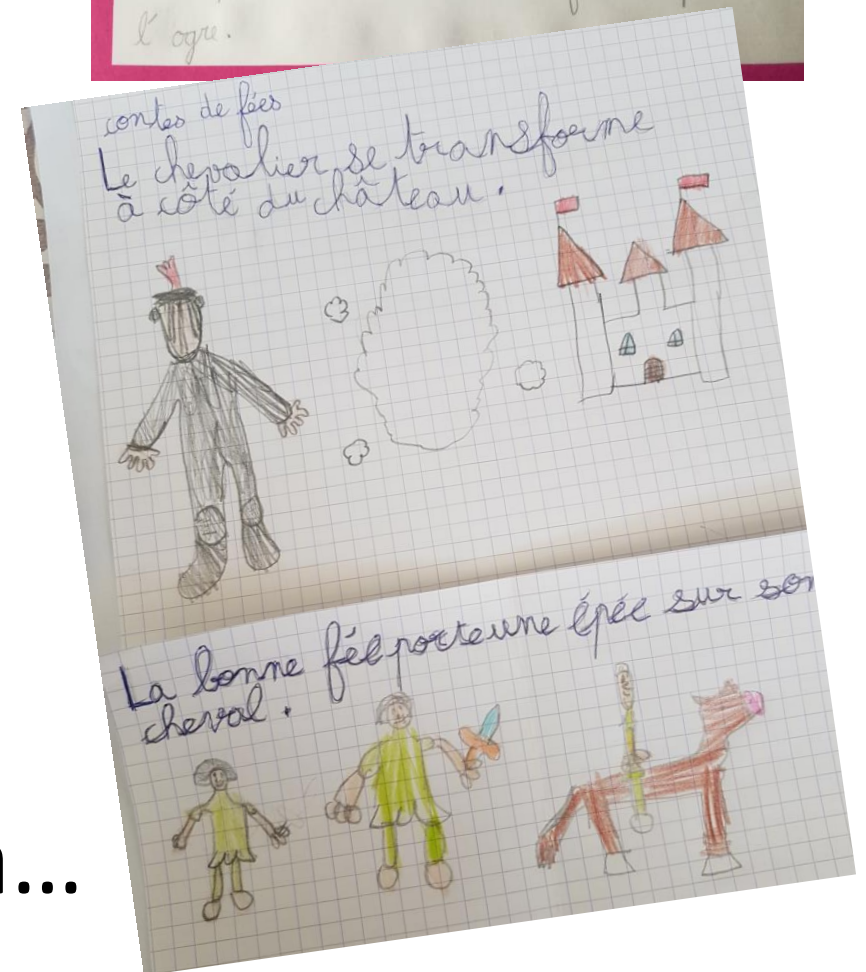 l'ogre.
contes de fées
Le chevalier se transforme
à côté du château.
La bonne fée porte une épée sur son
cheval.
...